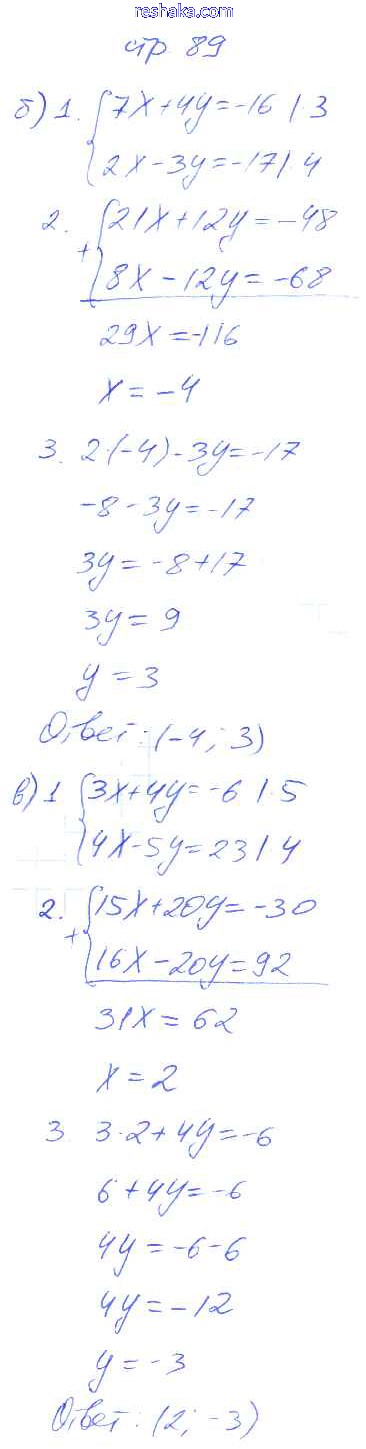 reshaka.com
стр. 89
б) 1. 7x+4y=-16 | ·3
2x-3y=-17 | ·4
2. 21x+12y=-48
+ 8x-12y=-68
29x=-116
x=-4
3. 2·(-4)-3y=-17
-8-3y=-17
3y=-8+17
3y=9
y=3
Ответ: (-4; 3)
в) 1 3x+4y=-6 | ·5
4x-5y=23 | 4
2. 15x+20y=-30
+ 16x-20y=92
31x=62
x=2
3. 3·2+4y=-6
6+4y=-6
4y=-6-6
4y=-12
y=-3
Ответ: (2; -3)